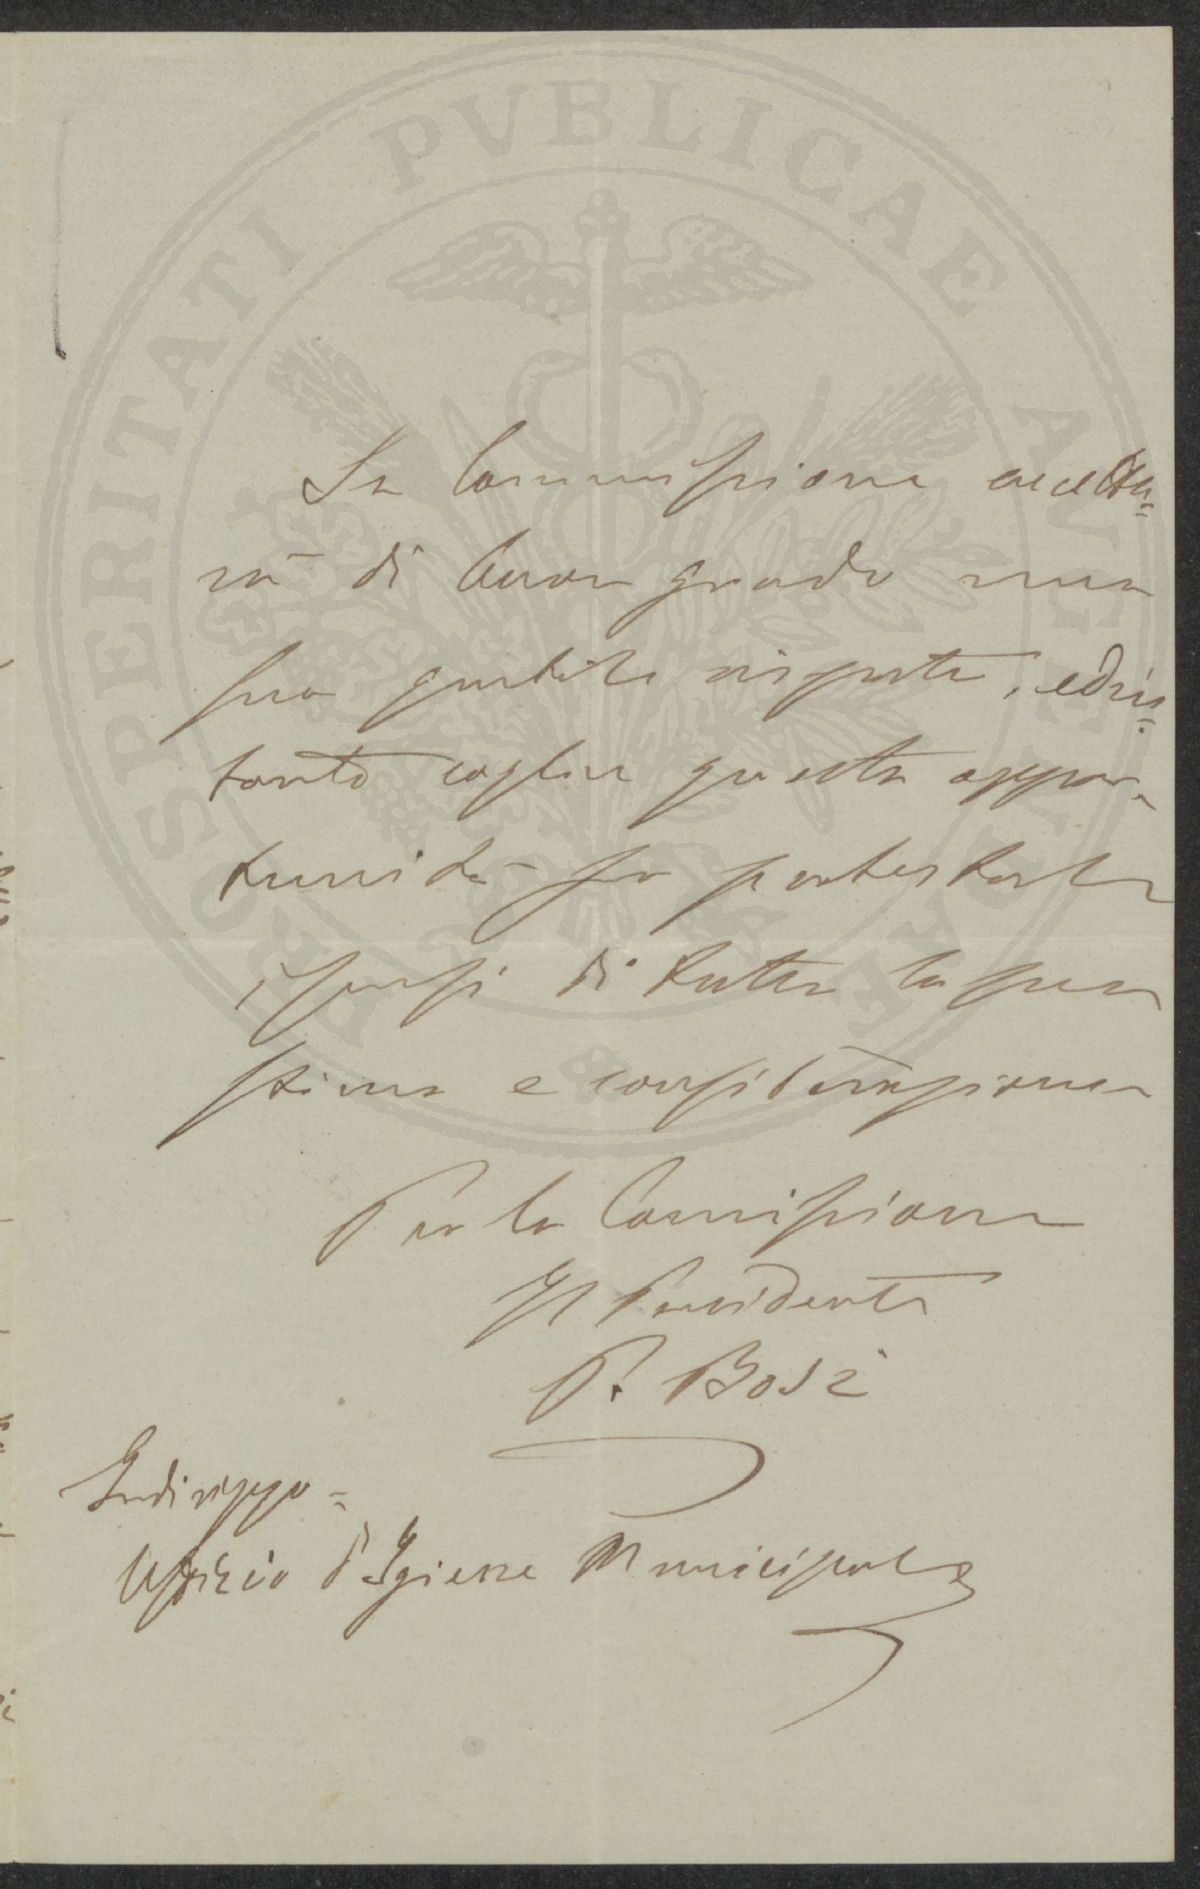 PROSPERITATI PVBLICAE AVGENDAE
La Commissione accette=
rà di buon grado una
sua gentile risposta, ed in=
tanto coglie questa oppor=
tunità per protestarle
i sensi di tutta la sua
stima e considerazione
Per la Comissione
Il Presidente
P. Bosi
Indirizzo =
Uffizio d'Igiene Municipale